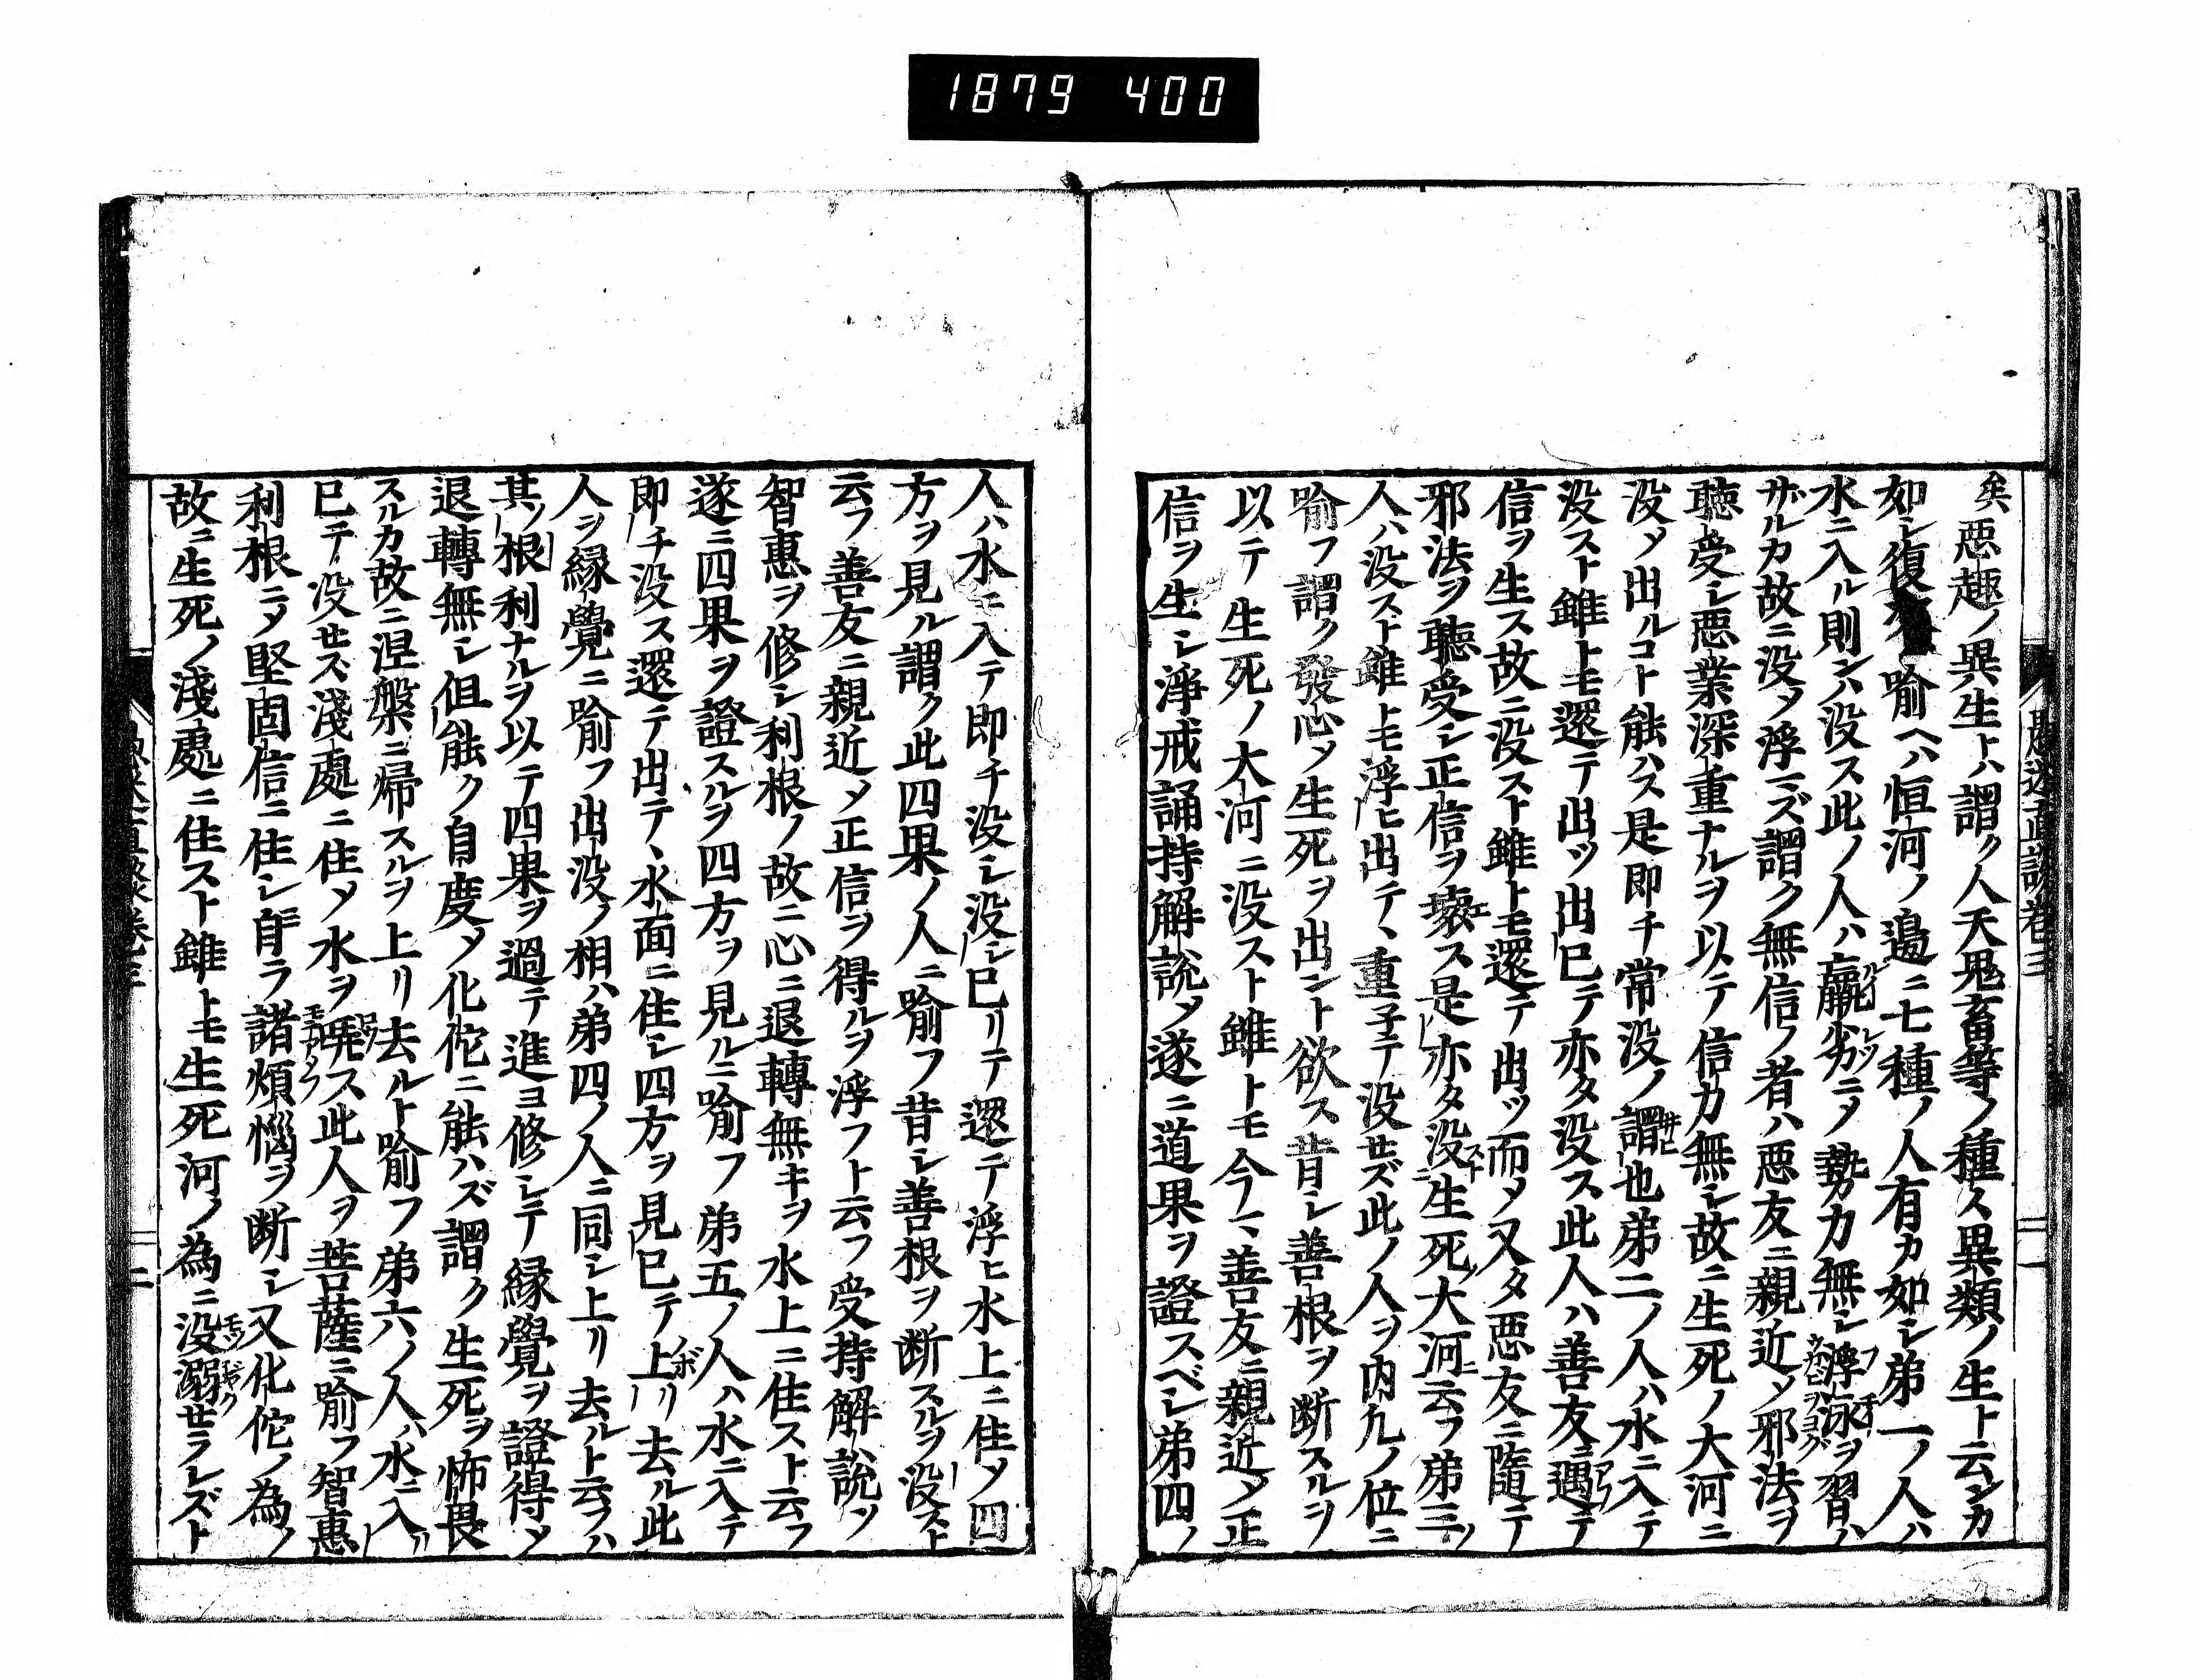 1879 400
矣悪趣ノ異生トハ謂ク人天鬼畜等ノ種々異類ノ生ト云ンカ
如シ復次喩ヘハ恒河ノ邊ニ七種ノ人有カ如シ弟一ノ人ハ
水ニ入ル則ンハ没ス此ノ人ハ羸劣ニメ勢力無シ浮泳ヲ習ハ
ザルカ故ニ没メ浮ニズ謂ク無信ノ者ハ悪友ニ親近メ邪法ヲ
聴受シ悪業深重ナルヲ以テ信力無シ故ニ生死ノ大河ニ
没メ出ルコト能ハス是即チ常没ノ謂也弟二ノ人ハ水ニ入テ
没スト雖トモ還テ出ツ出已テ亦タ没ス此人ハ善友ニ遇テ
信ヲ生ス故ニ没スト雖トモ還テ出ツ而メ又タ悪友ニ隨テ
邪法ヲ聴受シ正信ヲ壊ス是亦タ没生死大河ニ云フ弟三ノ
人ハ没スト雖トモ浮ヒ出テヽ重子テ没せズ此ノ人ヲ内凡ノ位ニ
喩フ謂ク發心メ生死ヲ出ント欲ス昔シ善根ヲ断スルヲ
以テ生死ノ大河ニ没スト雖トモ今マ善友ニ親近メ正
信ヲ生シ淨戒誦持解説メ遂ニ道果ヲ證スベシ弟四ノ
人ハ水ニ入テ即チ没シ没シ已リテ還テ浮ヒ水上ニ住メ四
方ヲ見ル謂ク此四果ノ人ニ喩フ昔シ善根ヲ断スルヲ没スト
云フ善友ニ親近メ正信ヲ得ルヲ浮フト云フ受持解説ソ
智惠ヲ修シ利根ノ故ニ心ニ退轉無キヲ水上ニ住スト云フ
遂ニ四果ヲ證スルヲ四方ヲ見ルニ喩フ弟五ノ人ハ水ニ入テ
即チ没ス還テ出テヽ水面ニ住シ四方ヲ見已テ上リ去ル此
人ヲ縁覺ニ喩フ出没ノ相ハ弟四ノ人ニ同シ上リ去ルト云フハ
其ノ根利ナルヲ以テ四果ヲ過テ進ヨ修シテ縁覺ヲ證得メ
退轉無シ但能ク自度メ化佗ニ能ハズ謂ク生死ヲ怖畏
スルカ故ニ涅槃ニ帰スルヲ上リ去ルト喩フ弟六ノ人ハ水ニ入
已テ没せス淺處ニ住メ水ヲ翫ス此人ヲ菩薩ニ喩フ智惠
利根ニメ堅固信ニ住シ自ラ諸煩惱ヲ断シ又化佗ノ為ノ
故ニ生死ノ淺處ニ住スト雖トモ生死河ノ為ニ没溺せラレズト